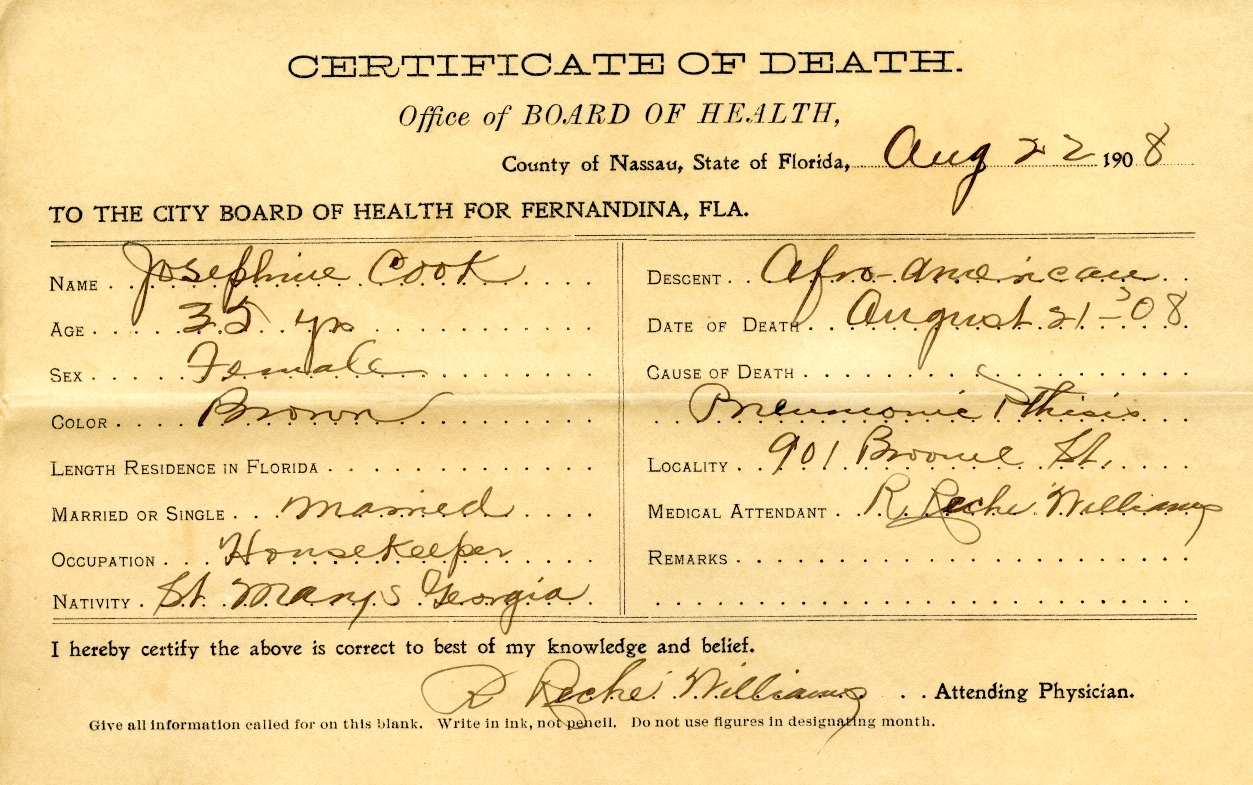 CERTIFICATE OF DEATH.
Office of BOARD OF HEALTH,
County of Nassau, State of Florida, Aug 22 1908
TO THE CITY BOARD OF HEALTH FOR FERNANDINA, FLA.
NAME Josephine Cook
AGE 35 yrs
SEX Female
COLOR Brown
LENGTH RESIDENCE IN FLORIDA
MARRIED OR SINGLE married
OCCUPATION Housekeeper
NATIVITY St. Marys Georgia
DESCENT Afro-american
DATE OF DEATH August 21 - 08
CAUSE OF DEATH
Pneumonic Pthisis
LOCALITY 901 Broome St.
MEDICAL ATTENDANT R Williams
REMARKS
I hereby certify the above is correct to best of my knowledge and belief.
R Williams Attending Physician.
Give all information called for on this blank. Write in ink, not pencil. Do not use figures in designating month.